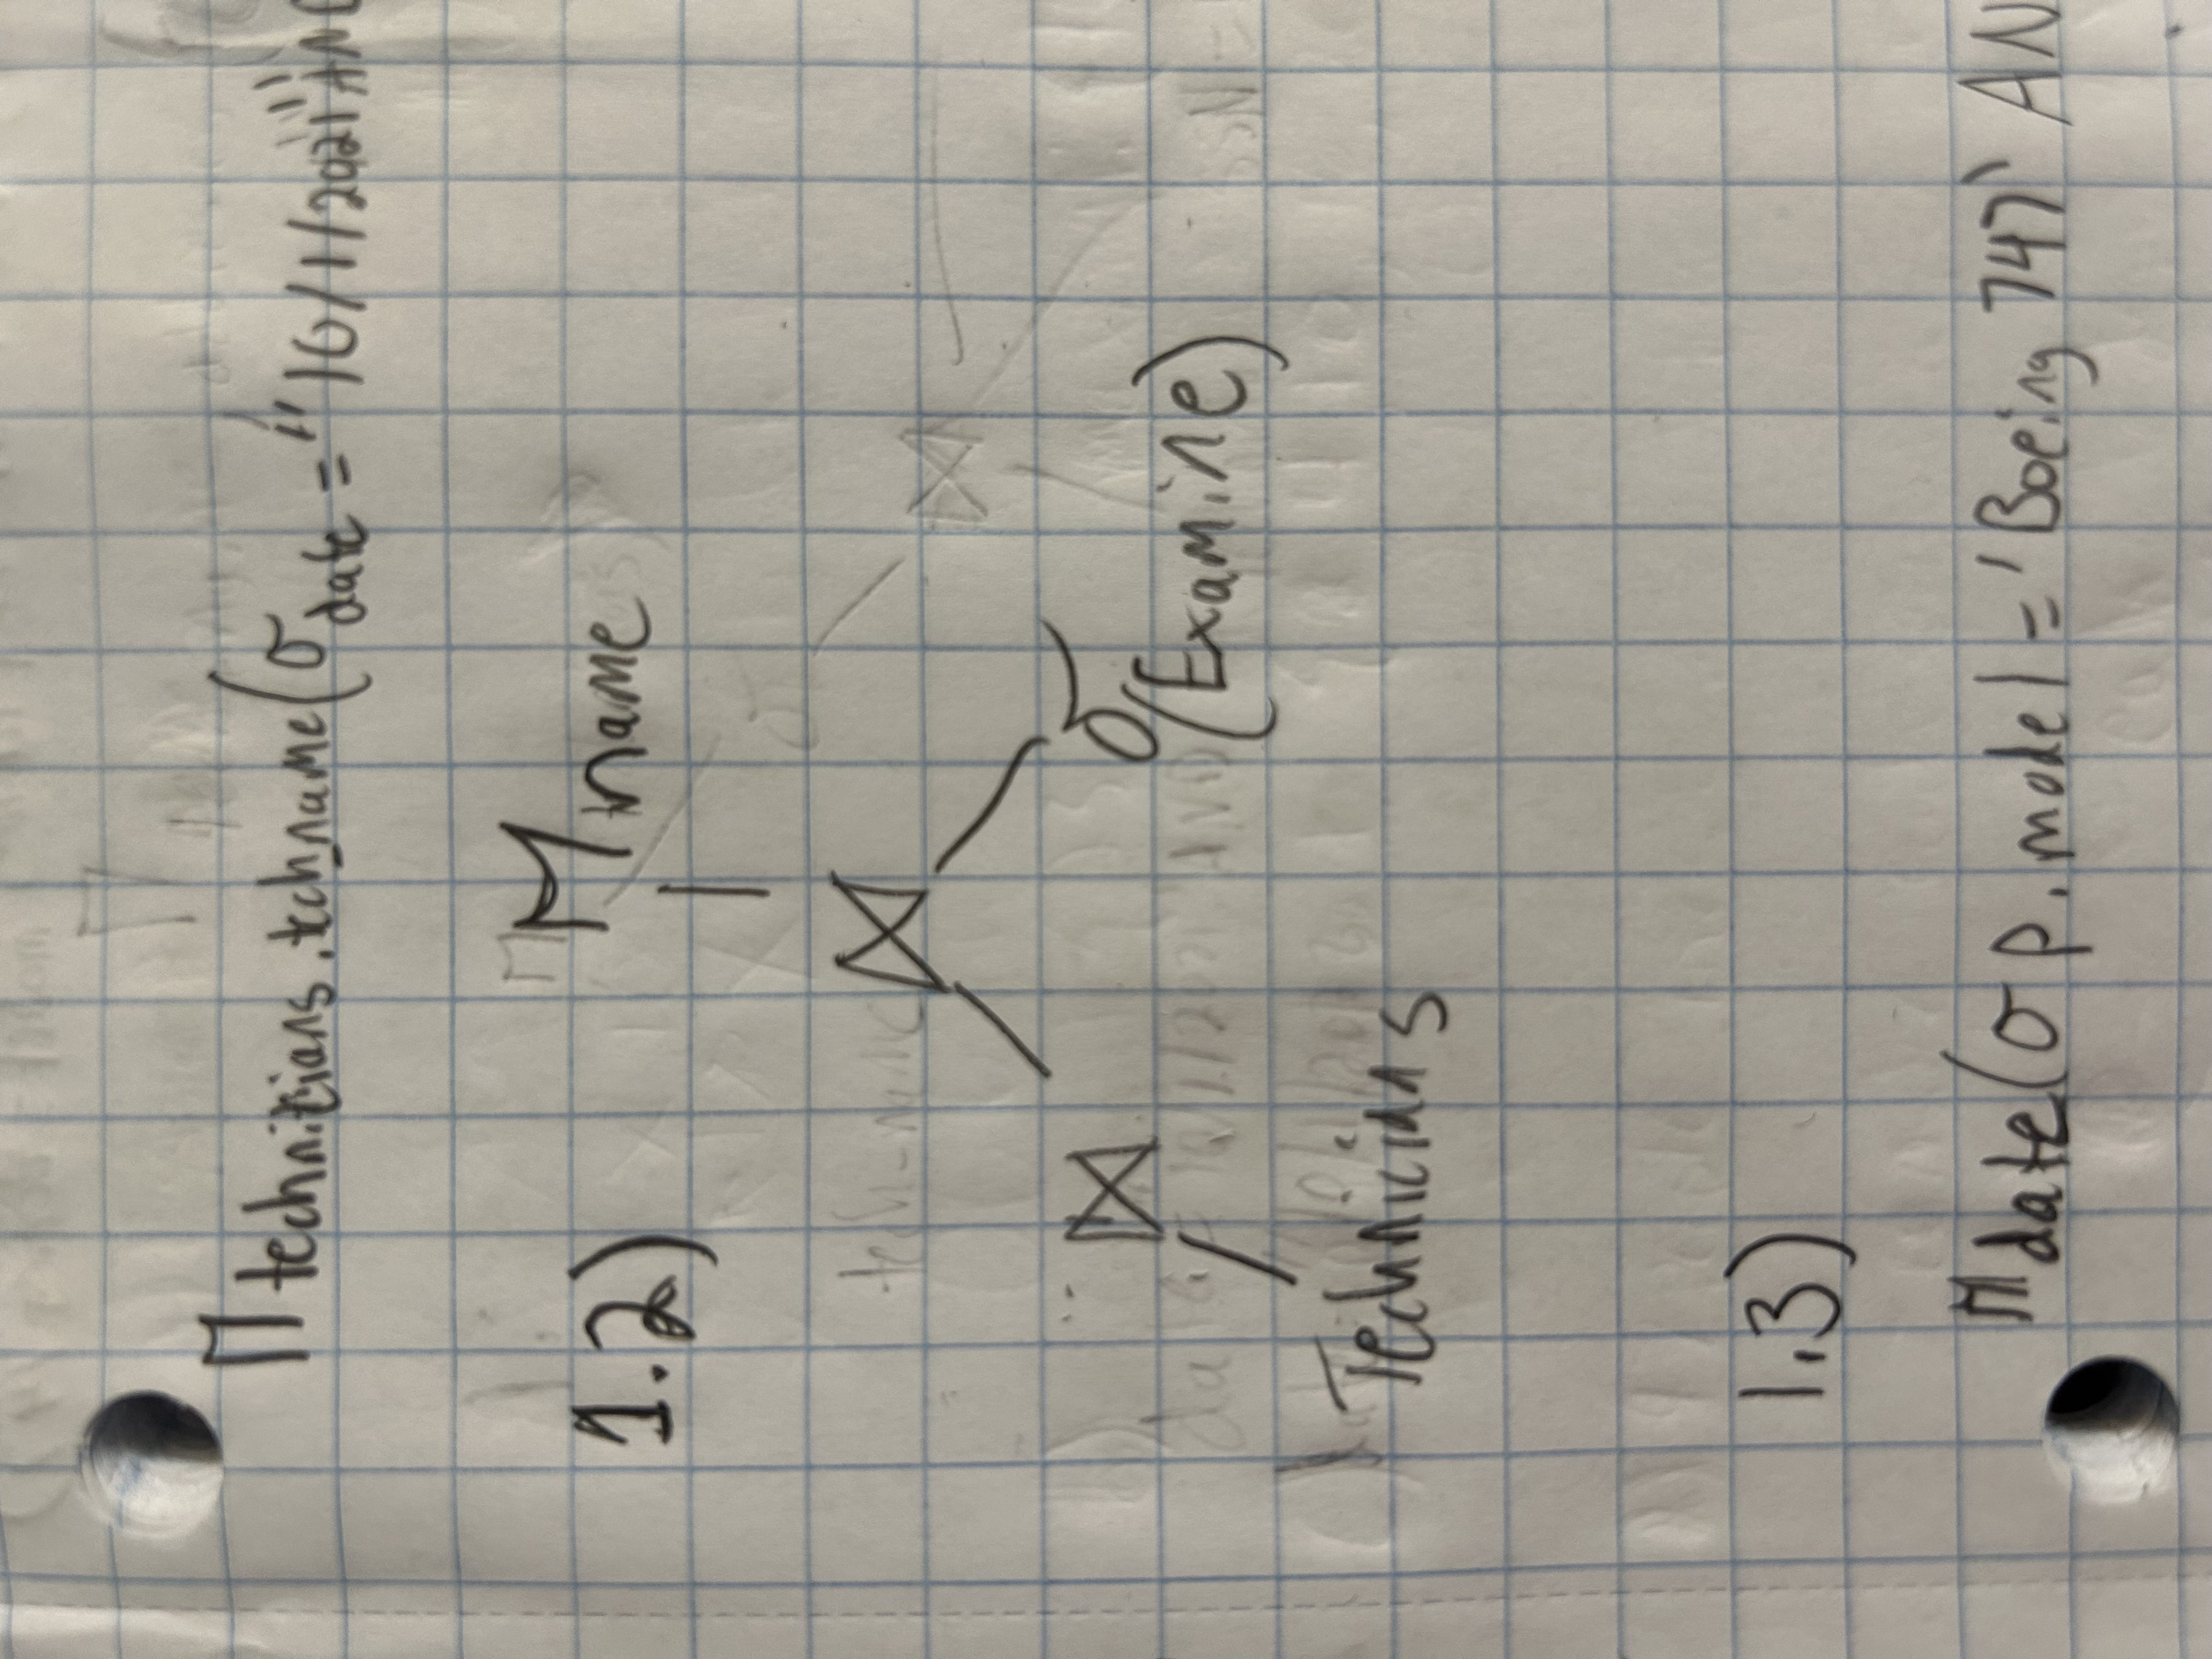 Π technicians.tech_name(σ date = "10/1/2021" AND
1.2)
Π name
⋈
⋈ σ
(Examine)
Technicians
1.3)
Π date(σ p.model = 'Boeing 747' AN